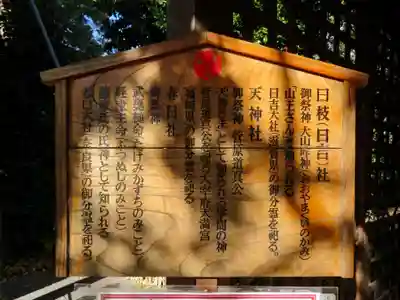 日枝（日吉）社
御祭神 大山咋神（おおやまくいのかみ）
山王さん
日吉大社（滋賀県）の御分霊を祀る。
天神社
御祭神 菅原道真公
学問の神
太宰府天満宮
の御分霊を祀る
春日社
武甕槌命（たけみかずちのみこと）
経津主命（ふつぬしのみこと）
の氏神として知られる
春日大社（奈良県）の御分霊を祀る。